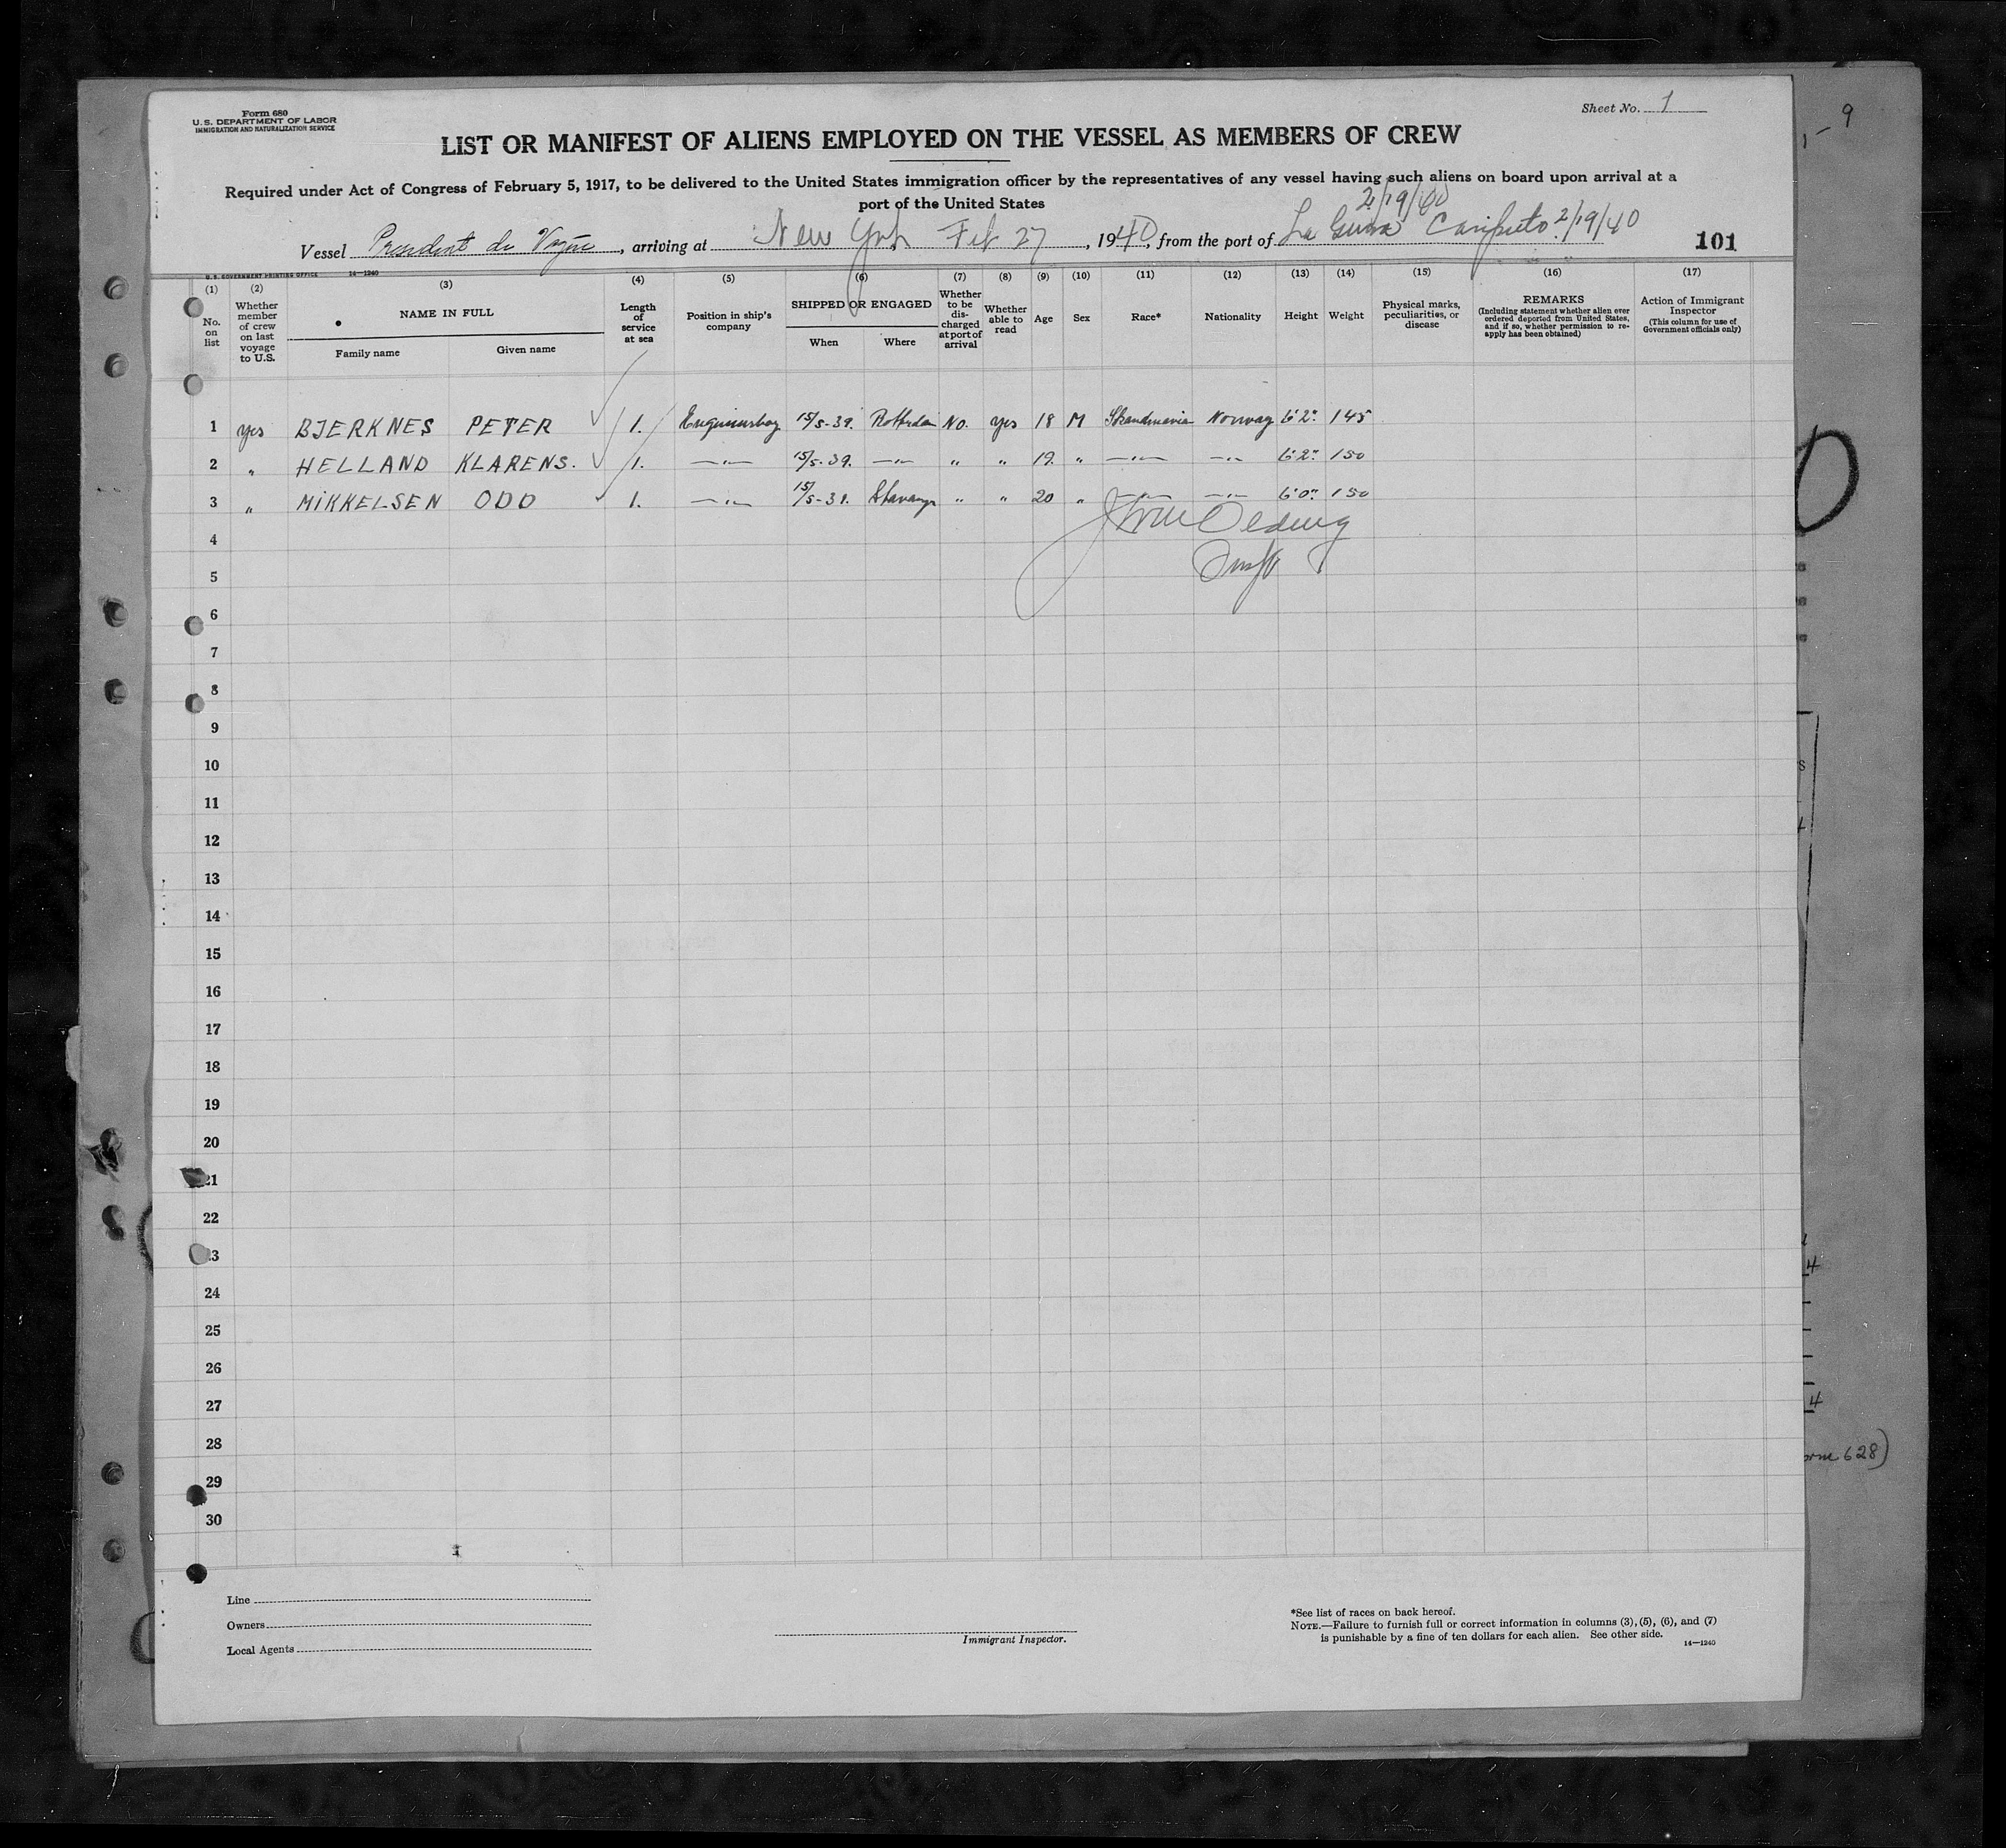 Form 680
U. S. DEPARTMENT OF LABOR
IMMIGRATION AND NATURALIZATION SERVICE
Sheet No. 1
9
LIST OR MANIFEST OF ALIENS EMPLOYED ON THE VESSEL AS MEMBERS OF CREW
Required under Act of Congress of February 5, 1917, to be delivered to the United States immigration officer by the representatives of any vessel having such aliens on board upon arrival at a
port of the United States
2/19/40
Vessel President de Vogüe, arriving at New York Feb 27, 1940, from the port of La Guira Caripito 2/19/40
101
U. S. GOVERNMENT PRINTING OFFICE 14—1240
(1) (2) (3) (4) (5) (6) (7) (8) (9) (10) (11) (12) (13) (14) (15) (16) (17)
No. on list
Whether member of crew on last voyage to U.S.
NAME IN FULL
Family name Given name
Length of service at sea
Position in ship's company
SHIPPED OR ENGAGED
When Where
Whether to be discharged at port of arrival
Whether able to read
Age
Sex
Race*
Nationality
Height
Weight
Physical marks, peculiarities, or disease
REMARKS
(Including statement whether alien ever ordered deported from United States, and if so, whether permission to reapply has been obtained)
Action of Immigrant Inspector
(This column for use of Government officials only)
1 yes BJERKNES PETER 1. Enginersboy 15/5-39. Rotterdam No. yes 18 M Skandinavia Norway 6'2" 145
2 " HELLAND KLARENS. 1. —"— 15/5-39. —"— " " 19. " —"— —"— 6'2" 150
3 " MIKKELSEN ODD 1. —"— 15/5-39. Stavanger " " 20 " —"— —"— 6'0" 150
4
5
6
7
8
9
10
11
12
13
14
15
16
17
18
19
20
21
22
23
24
25
26
27
28
29
30
4
4
628)
Line
Owners
Local Agents
Immigrant Inspector.
*See list of races on back hereof.
NOTE.—Failure to furnish full or correct information in columns (3), (5), (6), and (7)
is punishable by a fine of ten dollars for each alien. See other side.
14—1240